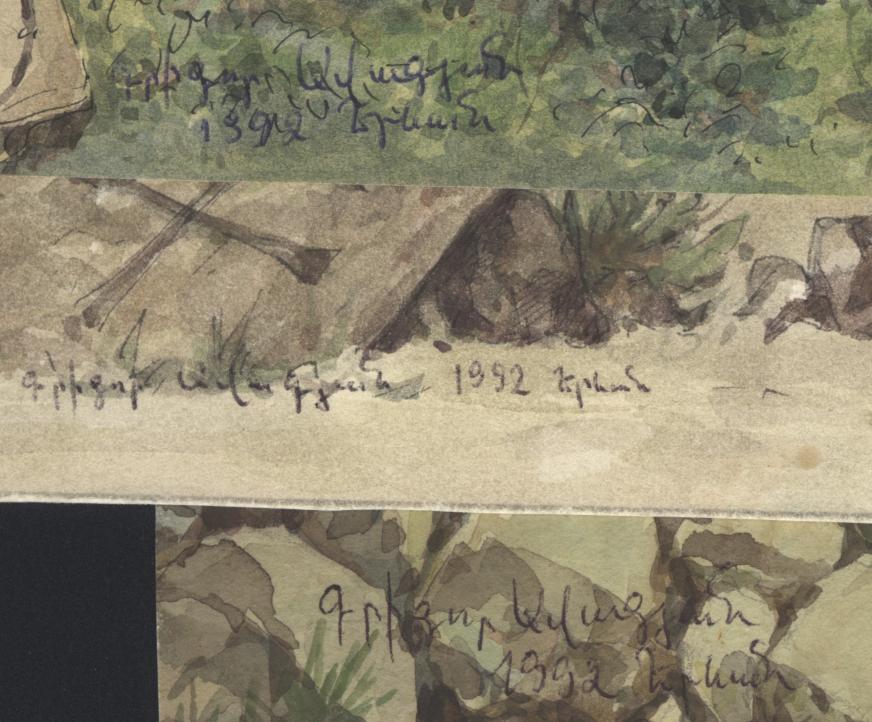 Գրիգոր Ավագյան
1992 Երևան
Գրիգոր Ավագյան 1992 Երևան
Գրիգոր Ավագյան
1992 Երևան